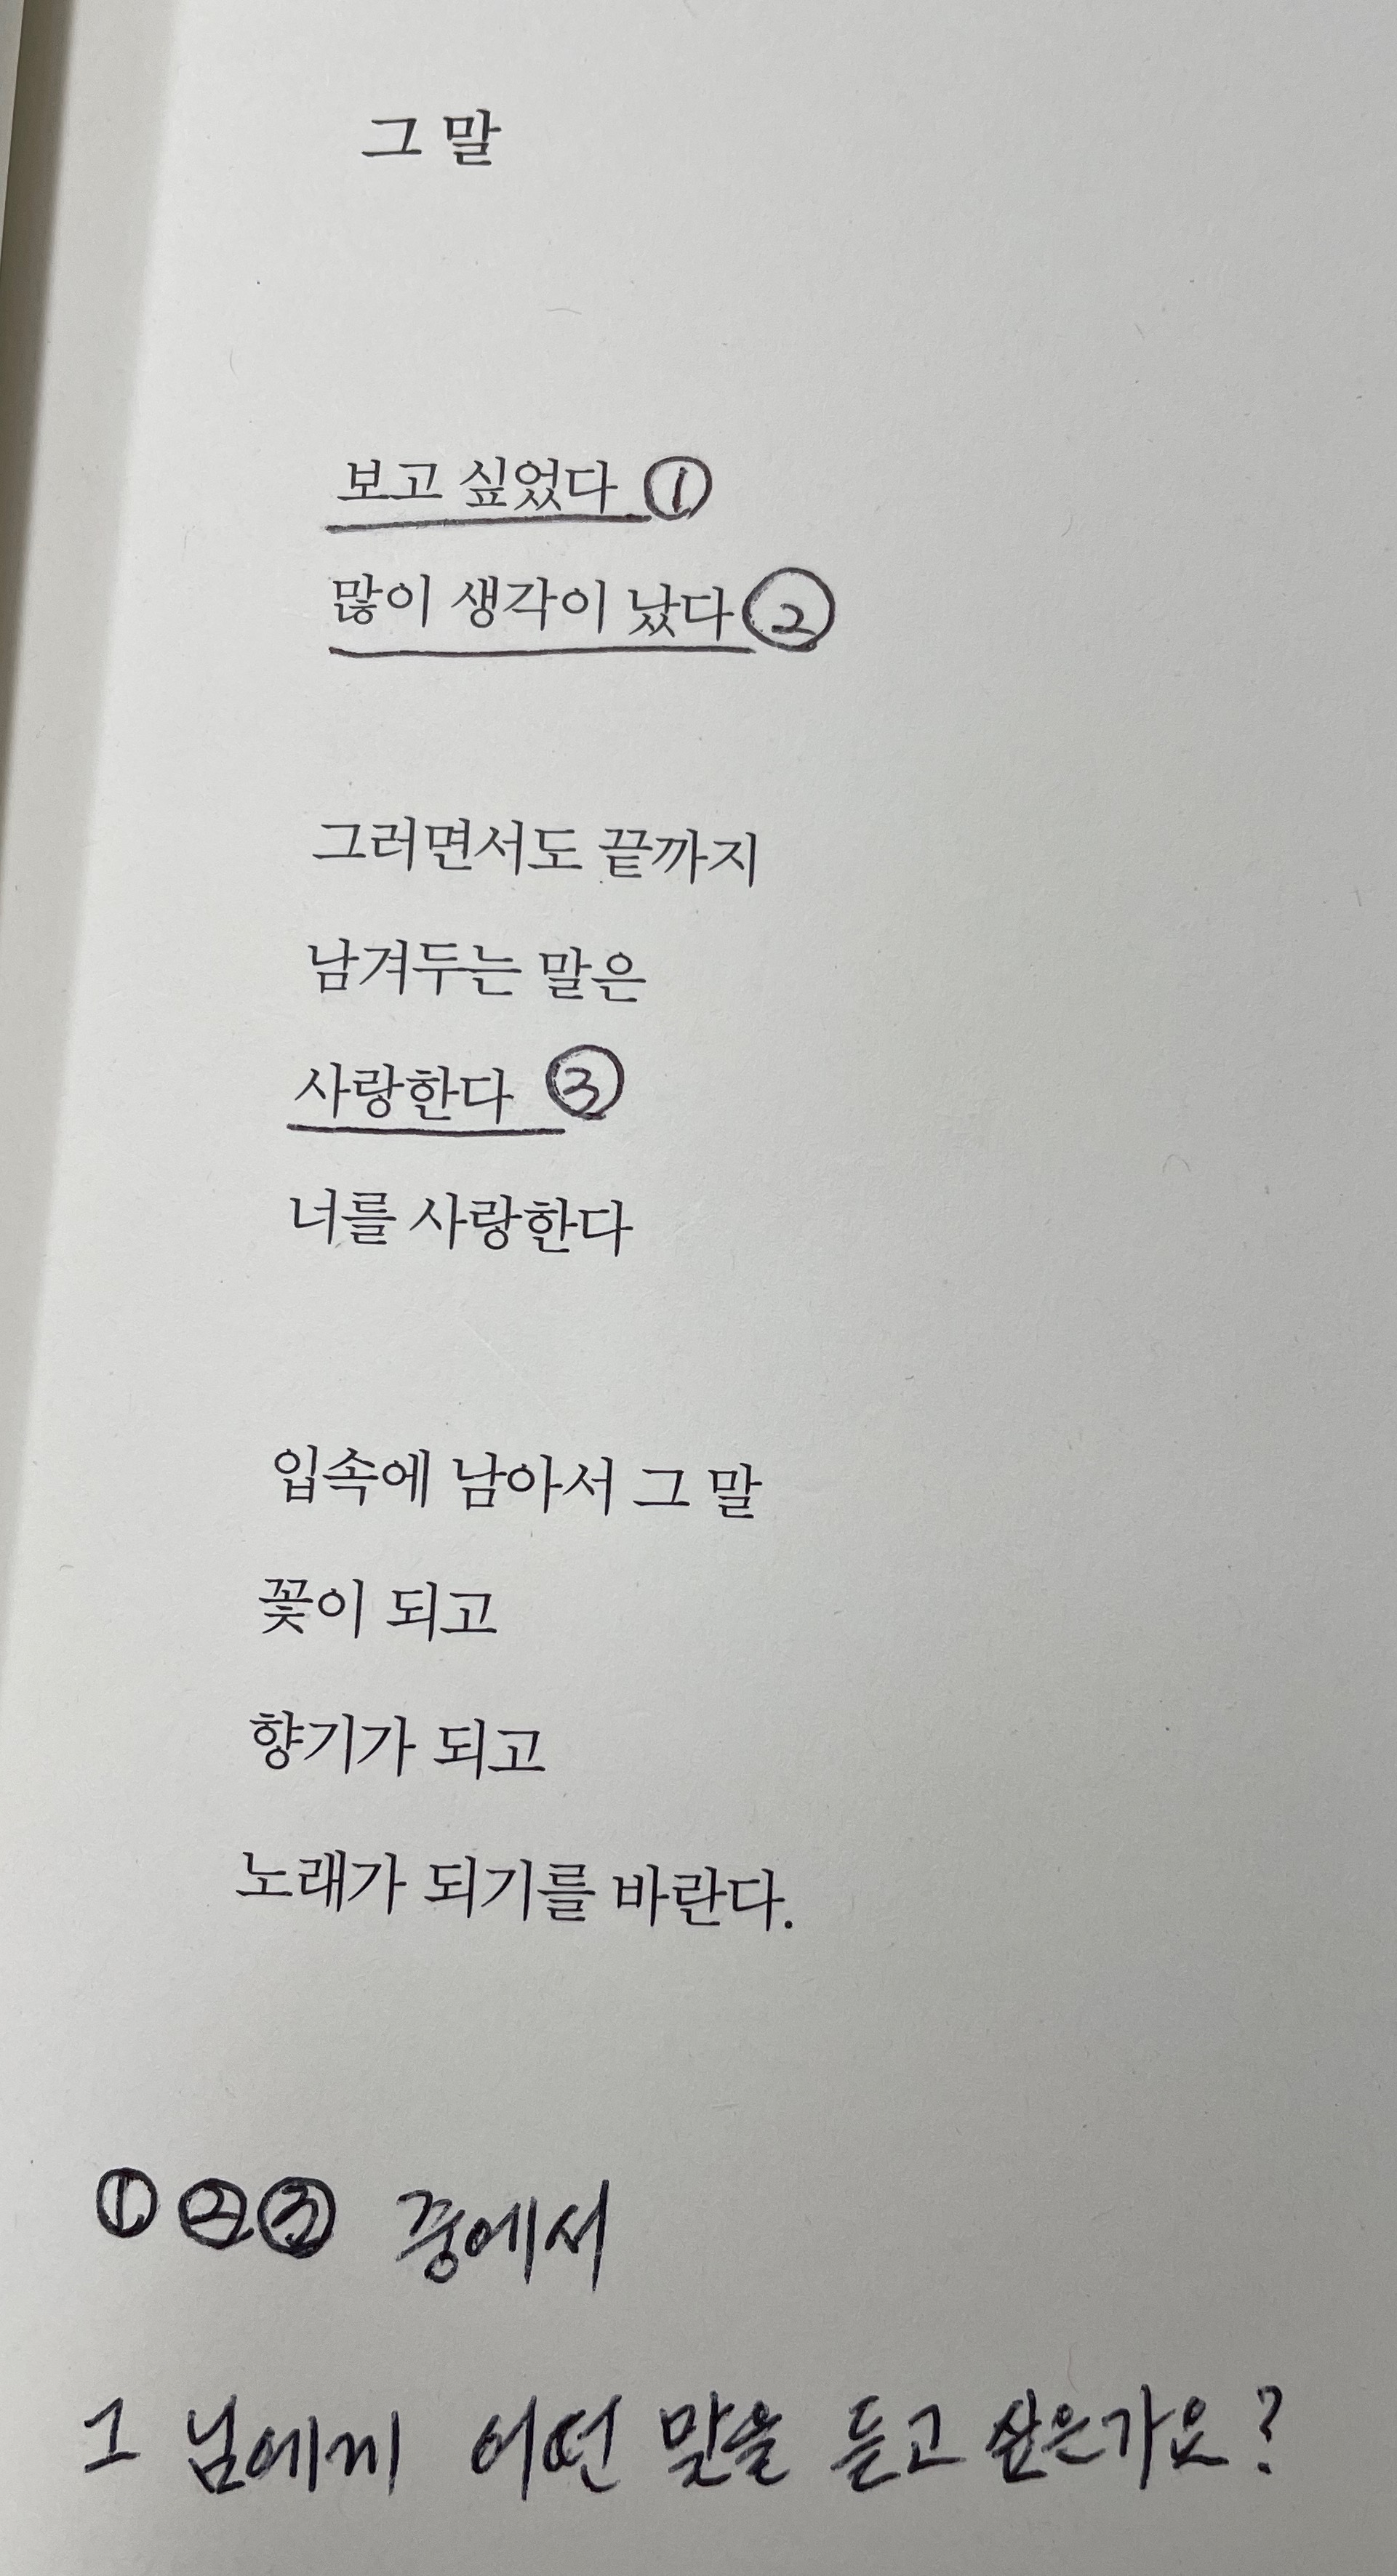 그 말
보고 싶었다 ①
많이 생각이 났다 ②
그러면서도 끝까지
남겨두는 말은
사랑한다 ③
너를 사랑한다
입속에 남아서 그 말
꽃이 되고
향기가 되고
노래가 되기를 바란다.
① ② ③ 중에서
그 님에게 어떤 말을 듣고 싶은가요?